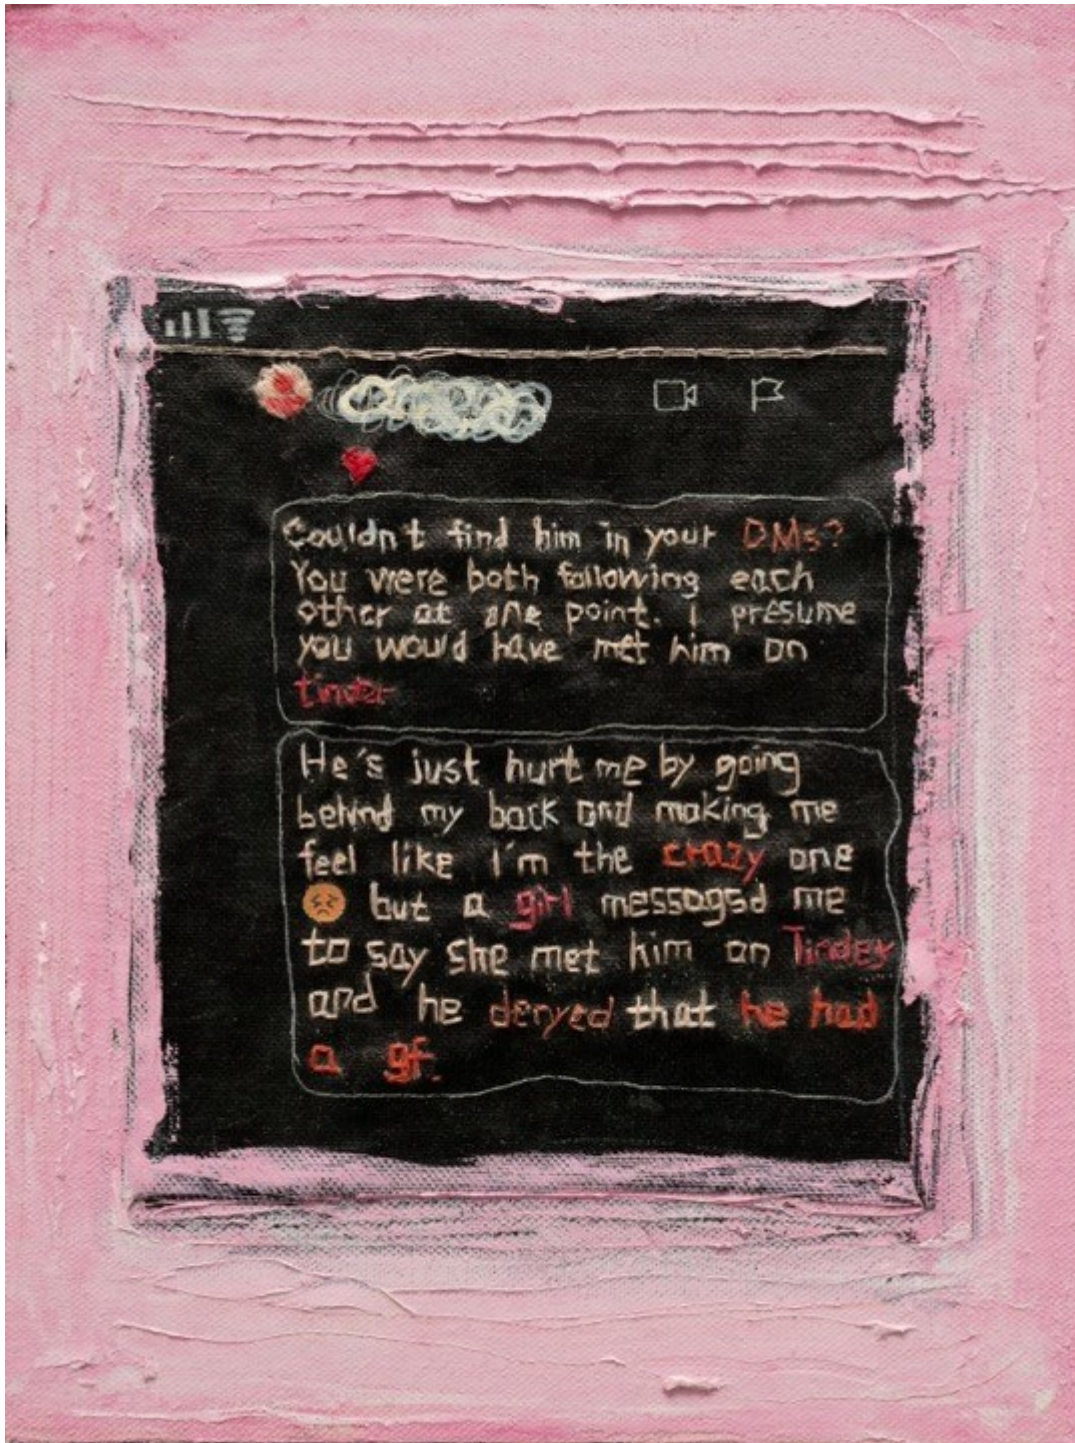 Couldn't find him in your DMs?
You were both following each
other at one point. I presume
you would have met him on
tinder
He's just hurt me by going
behind my back and making me
feel like I'm the crazy one
😣 but a girl messagsd me
to say she met him on Tinder
and he denyed that he had
a gf.